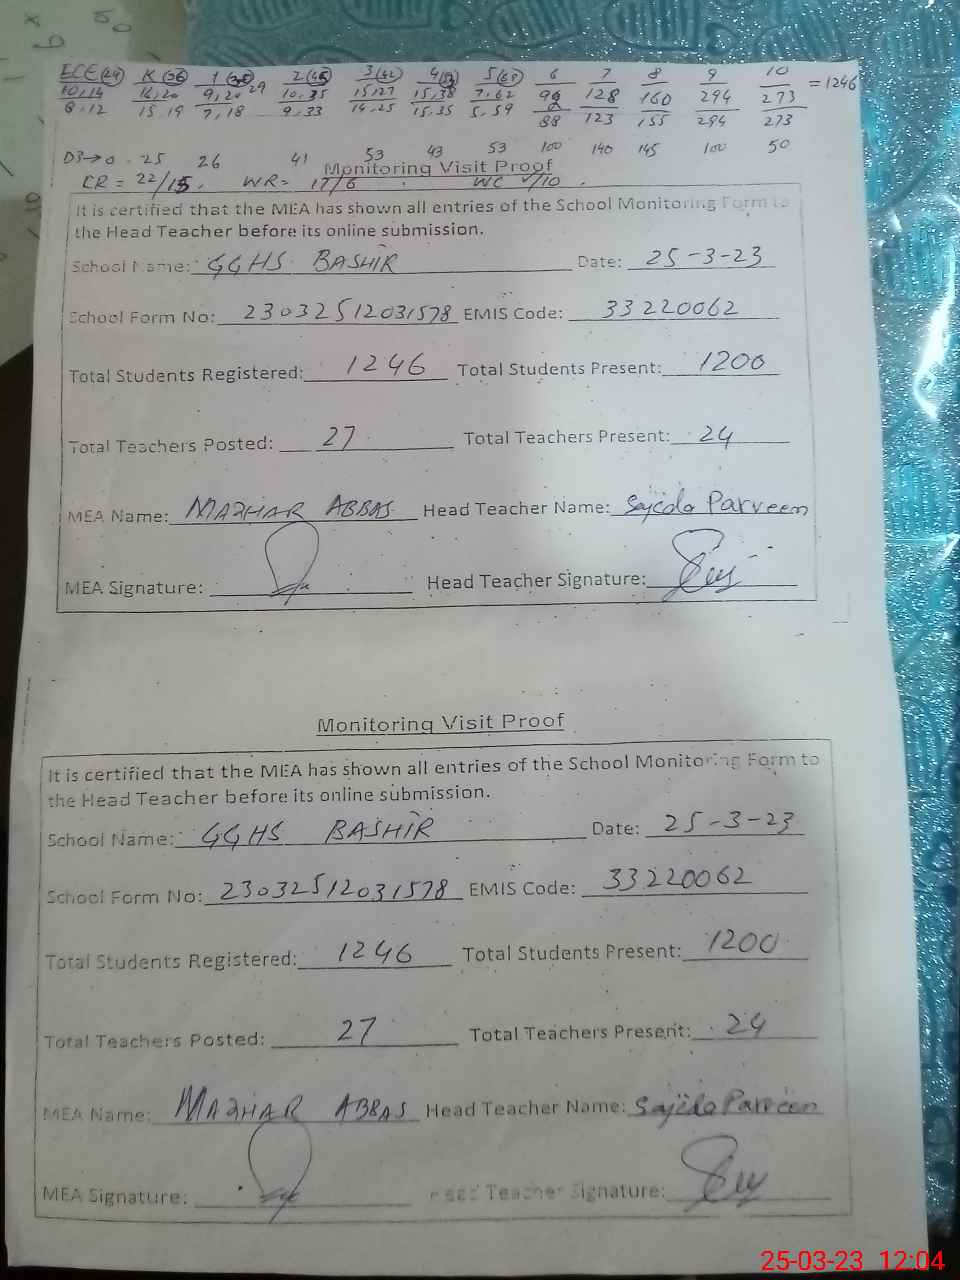 ECE(24) K(36) 1(38) 29 2(45) 3(42) 4(53) 5(69) 6 7 8 9 10 = 1246
10,14 16,20 9,20 10,35 15,27 15,38 7,62 128 160 294 273
8,12 15,19 7,18 9,33 14,25 15,35 5,59 88 123 155 294 273
D3→0 25 26 41 53 43 53 100 140 145 100 50
Monitoring Visit Proof
CR = 22/15, WR= 17/6 . WC 1/10 .
It is certified that the MEA has shown all entries of the School Monitoring Form to
the Head Teacher before its online submission.
School Name: GGHS BASHIR Date: 25-3-23
School Form No: 23032512031578 EMIS Code: 33220062
Total Students Registered: 1246 Total Students Present: 1200
Total Teachers Posted: 27 Total Teachers Present: 24
MEA Name: MAZHAR ABBAS Head Teacher Name: Sajeda Parveen
MEA Signature: Head Teacher Signature:
Monitoring Visit Proof
It is certified that the MEA has shown all entries of the School Monitoring Form to
the Head Teacher before its online submission.
School Name: GGHS BASHIR Date: 25-3-23
School Form No: 23032512031578 EMIS Code: 33220062
Total Students Registered: 1246 Total Students Present: 1200
Total Teachers Posted: 27 Total Teachers Present: 24
MEA Name: MAZHAR ABBAS Head Teacher Name: Sajeda Parveen
MEA Signature: Head Teacher Signature:
25-03-23 12:04